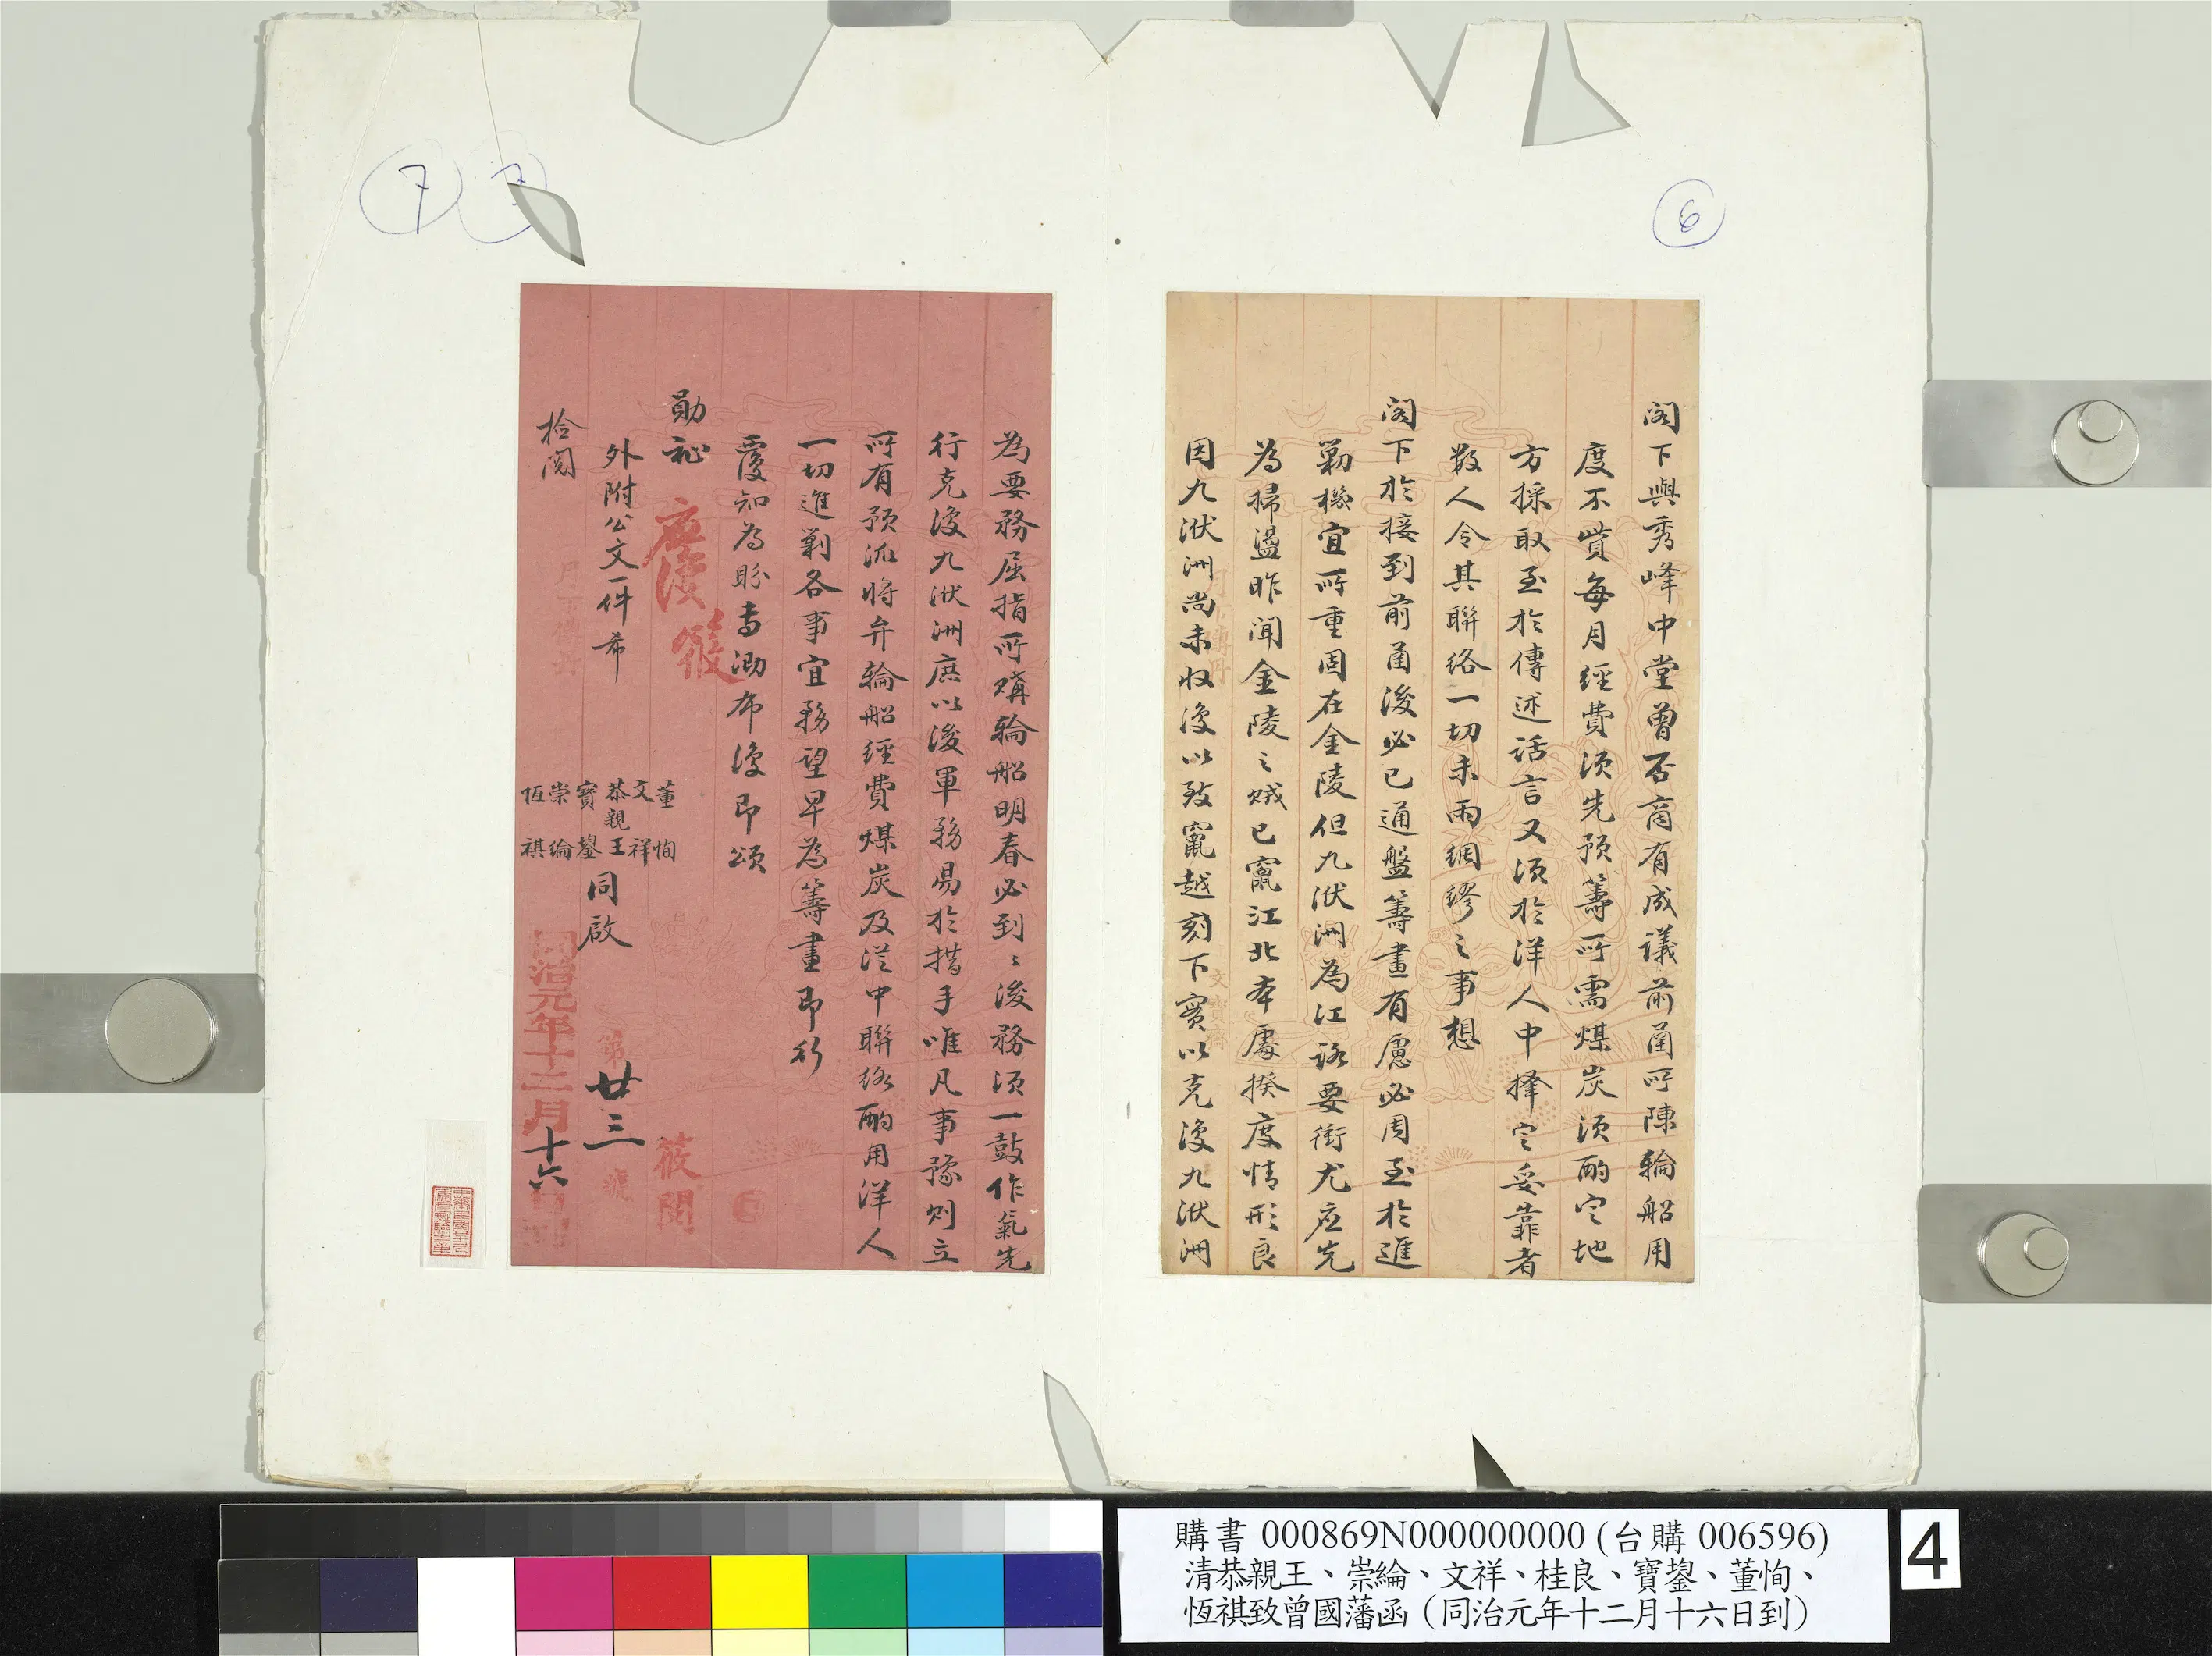 ⑥
閣下與秀峰中堂曾否商有成議前函所陳輪船用
度不貲每月經費須先預籌所需煤炭須酌定地
方採取至於傳述話言又須於洋人中擇定妥靠者
數人令其聯絡一切未雨綢繆之事想
閣下於接到前函後必已通盤籌畫有慮必周至於進
勦機宜所重固在金陵但九洑洲為江路要衝尤應先
為掃盪昨聞金陵之賊已竄江北本處揆度情形良
因九洑洲尚未收復以致竄越刻下實以克復九洑洲
⑦
7
為要務屈指所購輪船明春必到〻後務須一鼓作氣先
行克復九洑洲庶以後軍務易於措手唯凡事豫則立
所有預派將弁輪船經費煤炭及從中聯絡酌用洋人
一切進剿各事宜務望早為籌畫即行
覆知為盼專泐布復即頌
勛祉
應復
筱
外附公文一件希
檢閱
董恂
文祥
恭親王
寶鋆
崇綸
恆祺
同啟
第廿三號
同治元年十二月十六
購書 000869N000000000 (台購 006596)
清恭親王、崇綸、文祥、桂良、寶鋆、董恂、
恆祺致曾國藩函（同治元年十二月十六日到）
4